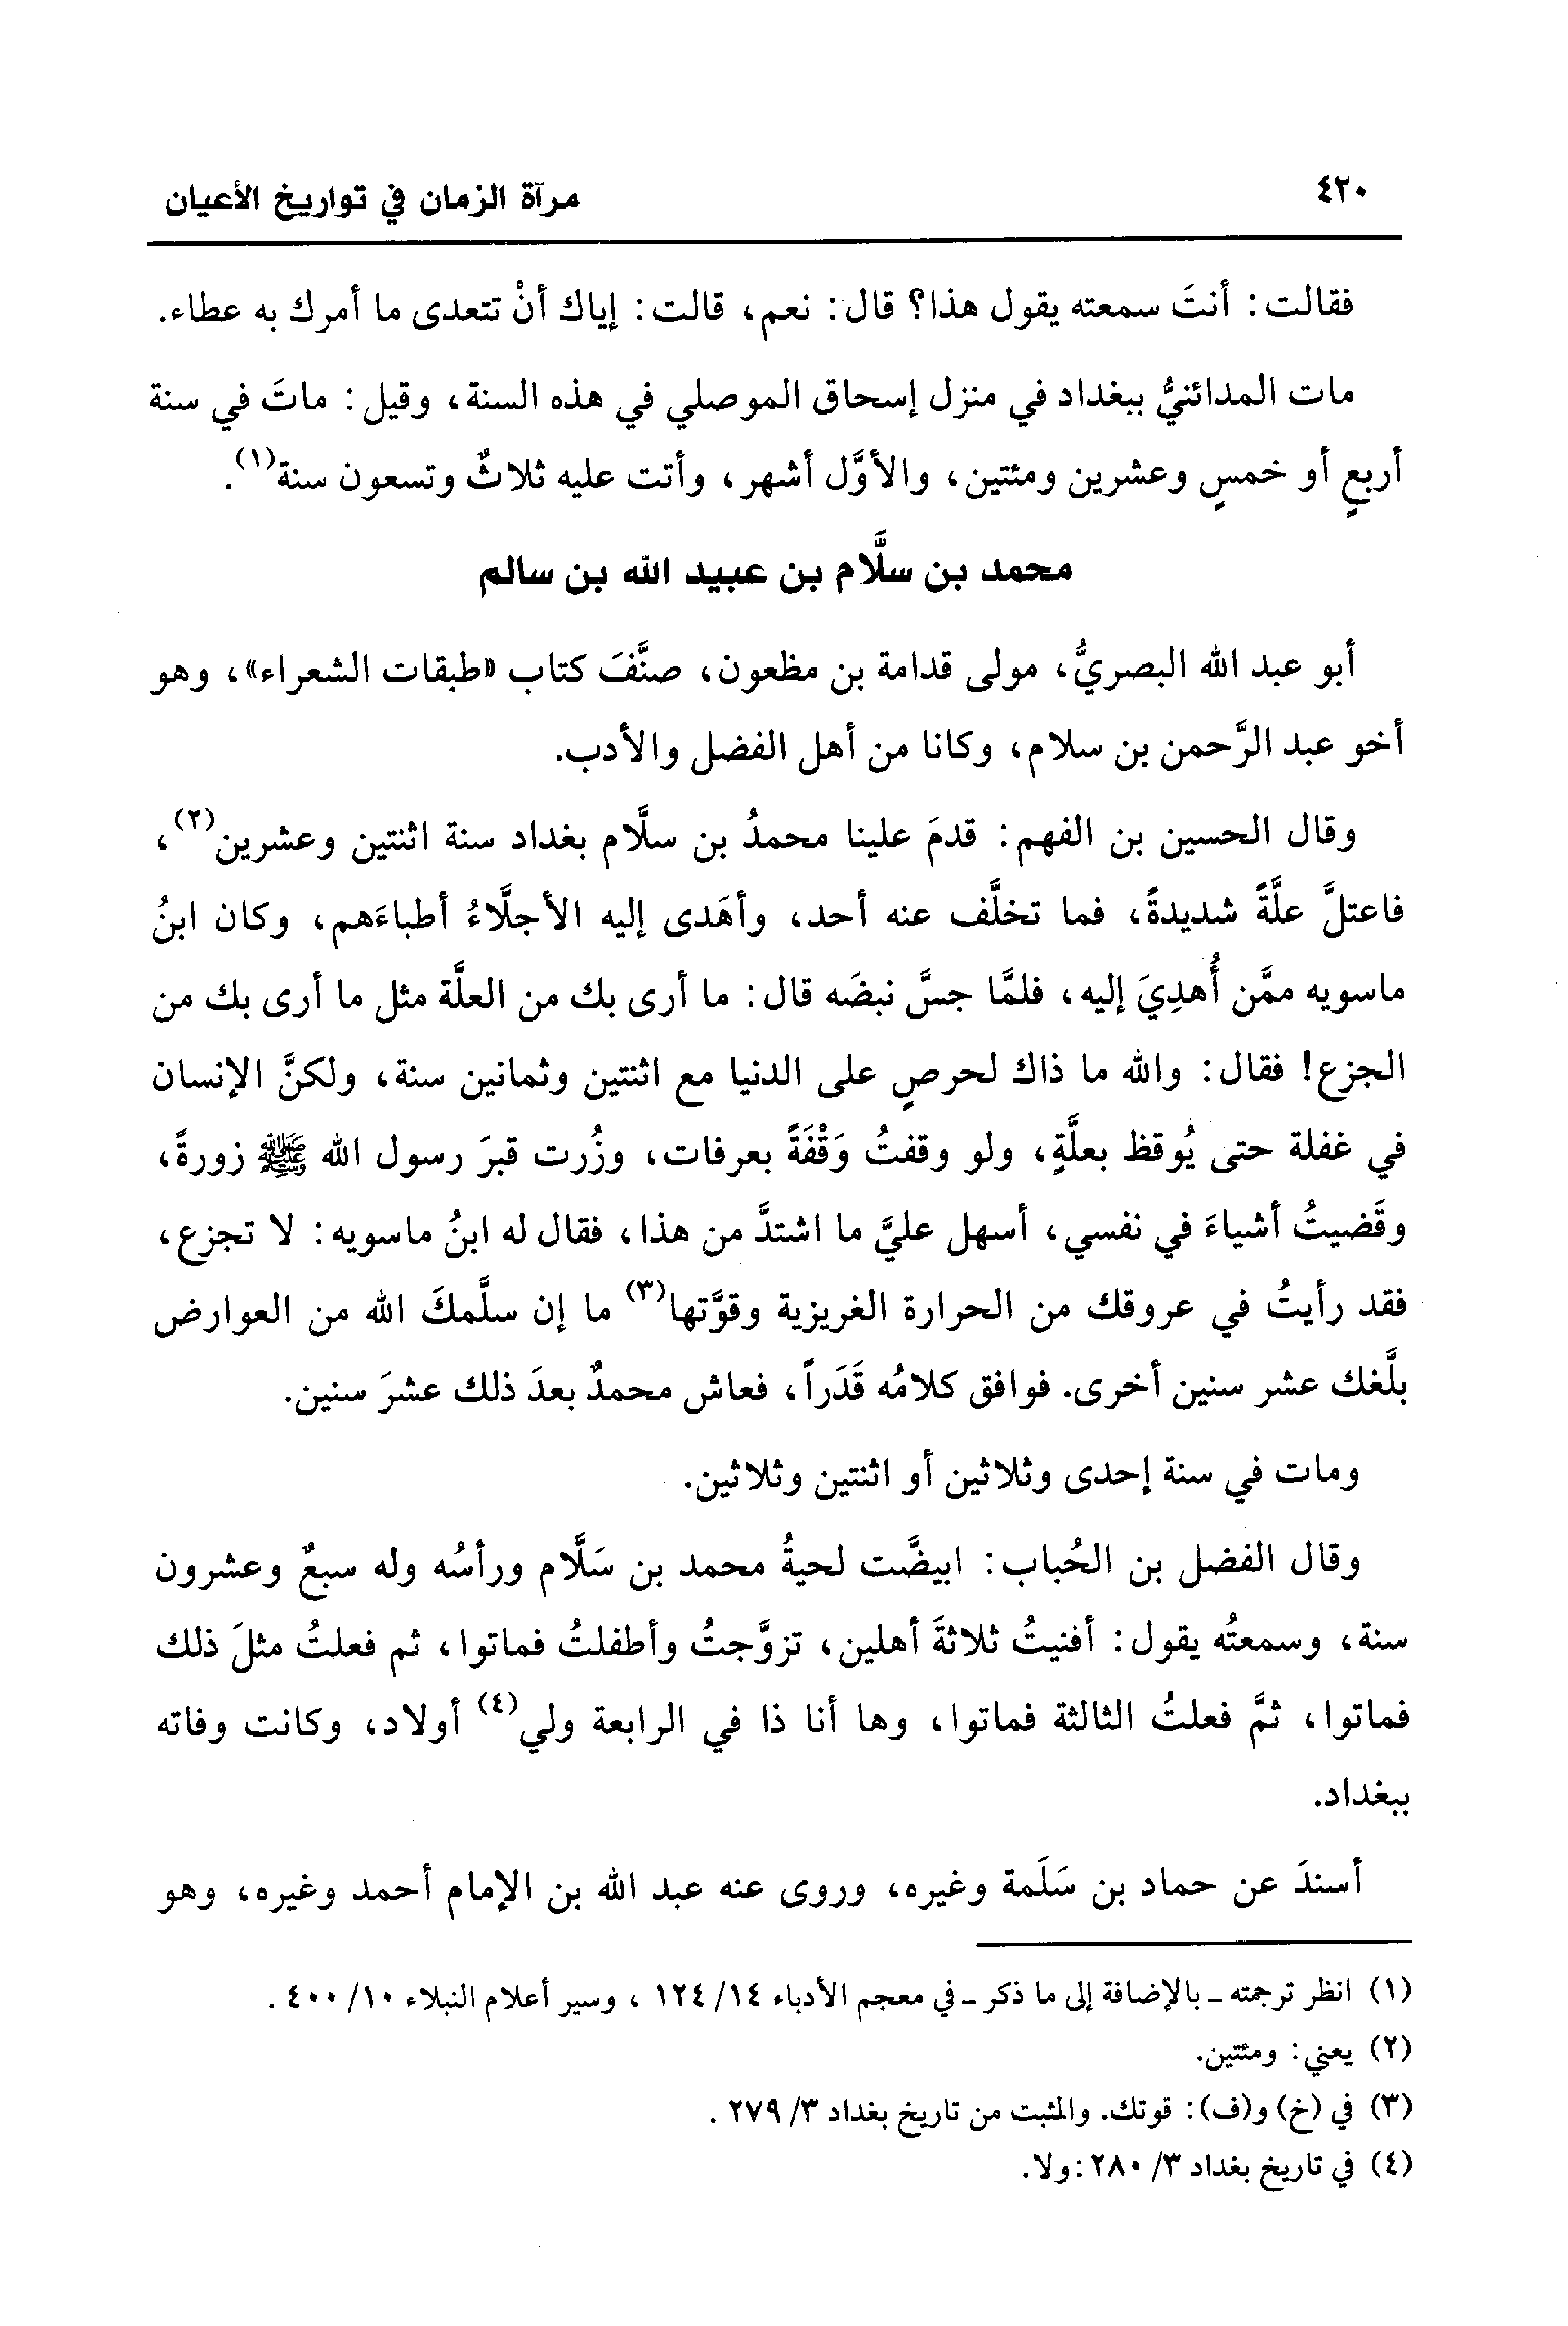 ٤٢٠
مرآة الزمان في تواريخ الأعيان
فقالت: أنتَ سمعته يقول هذا؟ قال: نعم، قالت: إياك أنْ تتعدى ما أمرك به عطاء.
مات المدائنيُّ ببغداد في منزل إسحاق الموصلي في هذه السنة، وقيل: ماتَ في سنة
أربعٍ أو خمسٍ وعشرين ومئتين، والأوَّل أشهر، وأتت عليه ثلاثٌ وتسعون سنة(١).
محمد بن سلَّام بن عبيد الله بن سالم
أبو عبد الله البصريُّ، مولى قدامة بن مظعون، صنَّفَ كتاب «طبقات الشعراء»، وهو
أخو عبد الرَّحمن بن سلام، وكانا من أهل الفضل والأدب.
وقال الحسين بن الفهم: قدمَ علينا محمدُ بن سلَّام بغداد سنة اثنتين وعشرين(٢)،
فاعتلَّ علَّةً شديدةً، فما تخلَّف عنه أحد، وأهَدى إليه الأجلَّاءُ أطباءَهم، وكان ابنُ
ماسويه ممَّن أُهدِيَ إليه، فلمَّا جسَّ نبضَه قال: ما أرى بك من العلَّة مثل ما أرى بك من
الجزع! فقال: والله ما ذاك لحرصٍ على الدنيا مع اثنتين وثمانين سنة، ولكنَّ الإنسان
في غفلة حتى يُوقظ بعلَّةٍ، ولو وقفتُ وَقْفَةً بعرفات، وزُرت قبرَ رسول الله ﷺ زورةً،
وقَضيتُ أشياءَ في نفسي، أسهل عليَّ ما اشتدَّ من هذا، فقال له ابنُ ماسويه: لا تجزع،
فقد رأيتُ في عروقك من الحرارة الغريزية وقوَّتها(٣) ما إن سلَّمكَ الله من العوارض
بلَّغك عشر سنين أخرى. فوافق كلامُه قَدَراً، فعاش محمدٌ بعدَ ذلك عشرَ سنين.
ومات في سنة إحدى وثلاثين أو اثنتين وثلاثين.
وقال الفضل بن الحُباب: ابيضَّت لحيةُ محمد بن سَلَّام ورأسُه وله سبعٌ وعشرون
سنة، وسمعتُه يقول: أفنيتُ ثلاثةَ أهلين، تزوَّجتُ وأطفلتُ فماتوا، ثم فعلتُ مثلَ ذلك
فماتوا، ثمَّ فعلتُ الثالثة فماتوا، وها أنا ذا في الرابعة ولي(٤) أولاد، وكانت وفاته
ببغداد.
أسندَ عن حماد بن سَلَمة وغيره، وروى عنه عبد الله بن الإمام أحمد وغيره، وهو
(١) انظر ترجمته ـ بالإضافة إلى ما ذكر ـ في معجم الأدباء ١٤/ ١٢٤ ، وسير أعلام النبلاء ١٠/ ٤٠٠ .
(٢) يعني: ومئتين.
(٣) في (خ) و(ف): قوتك. والمثبت من تاريخ بغداد ٣/ ٢٧٩ .
(٤) في تاريخ بغداد ٣/ ٢٨٠ :ولا.